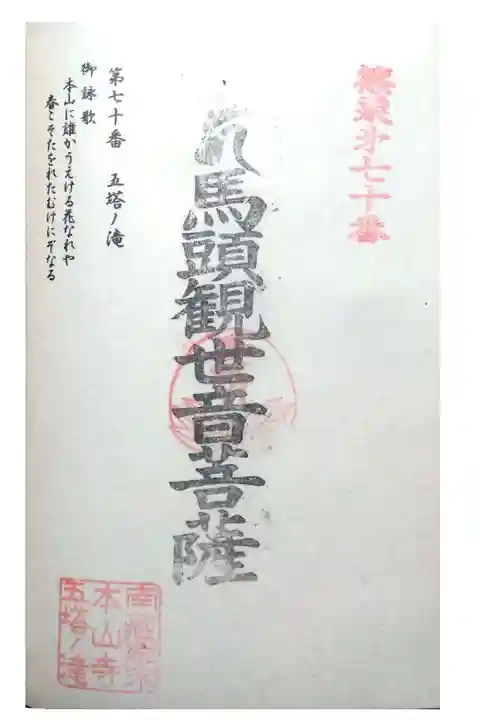 篠栗㐧七十番
馬頭観世音菩薩
第七十番 五塔ノ滝
御詠歌
本山に誰かうえける花なれや
春こそたをれたむけにぞなる
本山寺
五塔ノ滝